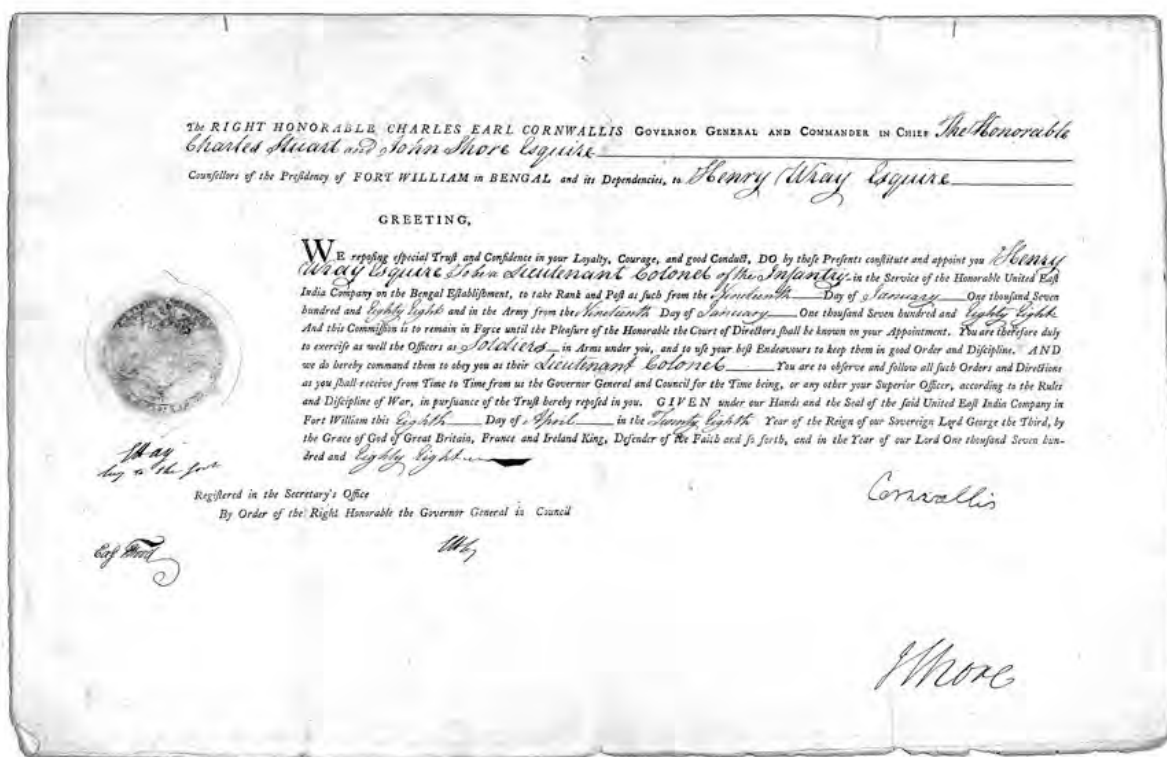 The RIGHT HONORABLE CHARLES EARL CORNWALLIS GOVERNOR GENERAL AND COMMANDER IN CHIEF The Honorable
Charles Stuart and John Shore Esquire
Counſellors of the Preſidency of FORT WILLIAM in BENGAL and its Dependencies, to Henry Wray Esquire
GREETING,
WE repoſing eſpecial Truſt and Confidence in your Loyalty, Courage, and good Conduct, DO by theſe Preſents conſtitute and appoint you Henry
Wray Esquire To be a Lieutenant Colonel of the Infantry in the Service of the Honorable United Eaſt
India Company on the Bengal Eſtabliſhment, to take Rank and Poſt as ſuch from the Nineteenth Day of January One thouſand Seven
hundred and Eighty Eight and in the Army from the Nineteenth Day of January One thouſand Seven hundred and Eighty Eight
And this Commiſſion is to remain in Force until the Pleaſure of the Honorable the Court of Directors ſhall be known on your Appointment. You are therefore duly
to exerciſe as well the Officers as Soldiers in Arms under you, and to uſe your beſt Endeavours to keep them in good Order and Diſcipline. AND
we do hereby command them to obey you as their Lieutenant Colonel You are to obſerve and follow all ſuch Orders and Directions
as you ſhall receive from Time to Time from us the Governor General and Council for the Time being, or any other your Superior Officer, according to the Rules
and Diſcipline of War, in purſuance of the Truſt hereby repoſed in you. GIVEN under our Hands and the Seal of the ſaid United Eaſt India Company in
Fort William this Eighth Day of April in the Twenty Eighth Year of the Reign of our Sovereign Lord George the Third, by
the Grace of God of Great Britain, France and Ireland King, Defender of the Faith and ſo forth, and in the Year of our Lord One thouſand Seven hun-
dred and Eighty Eight
EHay
to the Govt
Cornwallis
Regiſtered in the Secretary's Office
By Order of the Right Honorable the Governor General in Council
JShore